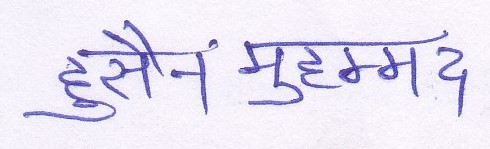 हुसैन मुहम्मद